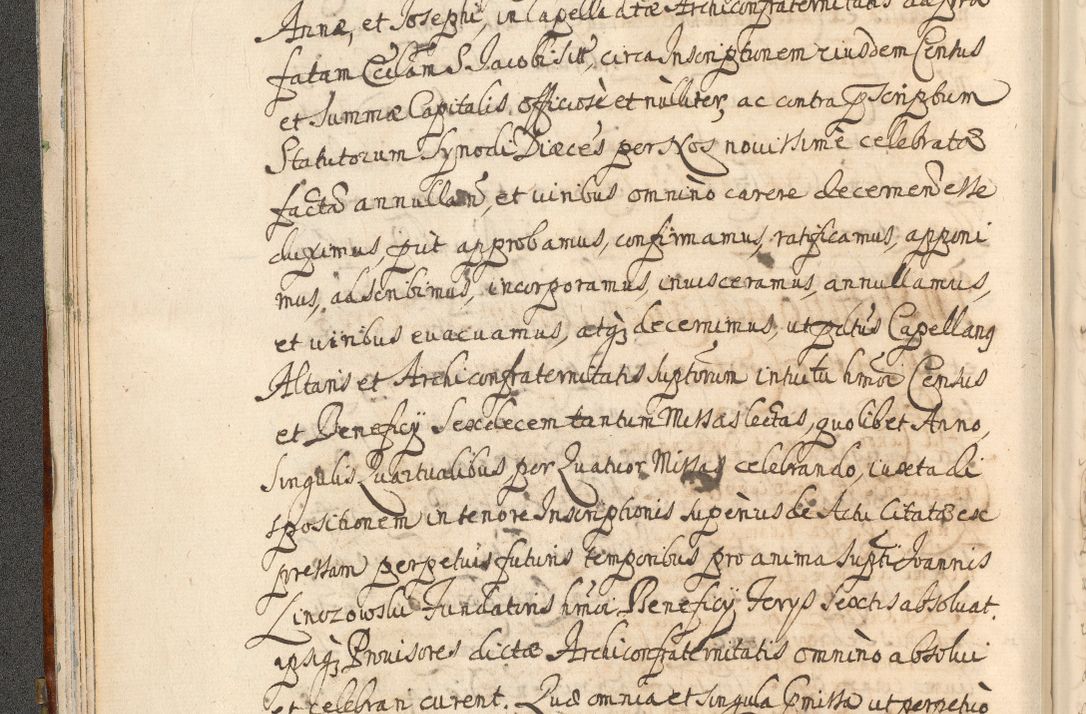 Annæ, et Josephi, in Capella dtæ Archiconfraternitatis ad præ
fatam Ecclam S. Jacobi sitt, circa Inscriptionem eiusdem Census
et Summæ Capitalis officiosè et nùlliter, ac contra pscriptum
Statutorum Synodi Diæces per Nos novissimè celebratæ
factā annullan, et viribus omnino carere decernen esse
duximus, put approbamus, confirmamus, ratificamus, apponi
mus, adscribimus, incorporamus, invisceramus, annullamus,
et viribus evacuamus, atq decernimus, ut pdtus Capellanq
Altaris et Archiconfraternitatis suptorum intuitu hmoi Census
et Beneficÿ Sexdecem tantum Missas lectas, quolibet Anno,
Singulis Quartualibus per Quatuor Missas celebrando, iuxta di
spositionem in tenore Inscriptionis superius de Actu Citatæ ex
pressam perpetuis futuris temporibus pro anima supti Joannis
Linozowski Fundatoris hmoi Beneficÿ, Ferÿs Sextis absolvat.
ipsiq Provisores dictæ Archiconfraternitatis omnino absolvi
et celebrari curent. Quæ omnia et singula pmissa ut perpetuò